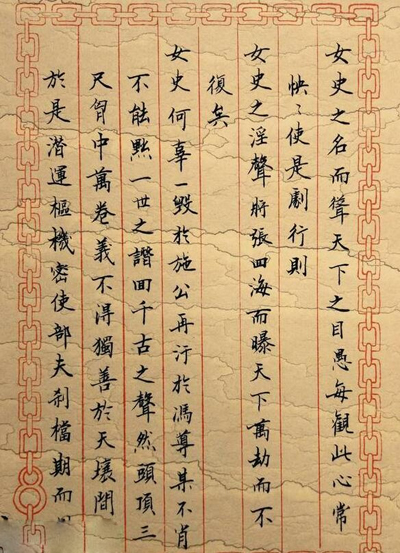 女史之名而聳天下之目愚每觀此心常
怏〻使是劇行則
女史之淫聲將張四海而曝天下萬劫而不
復矣
女史何辜一毀於施公再汙於馮導某不肖
不能點一世之譖回千古之聲然頭頂三
尺胷中萬卷義不得獨善於天壤間
於是潛運樞機密使部夫刹檔期而